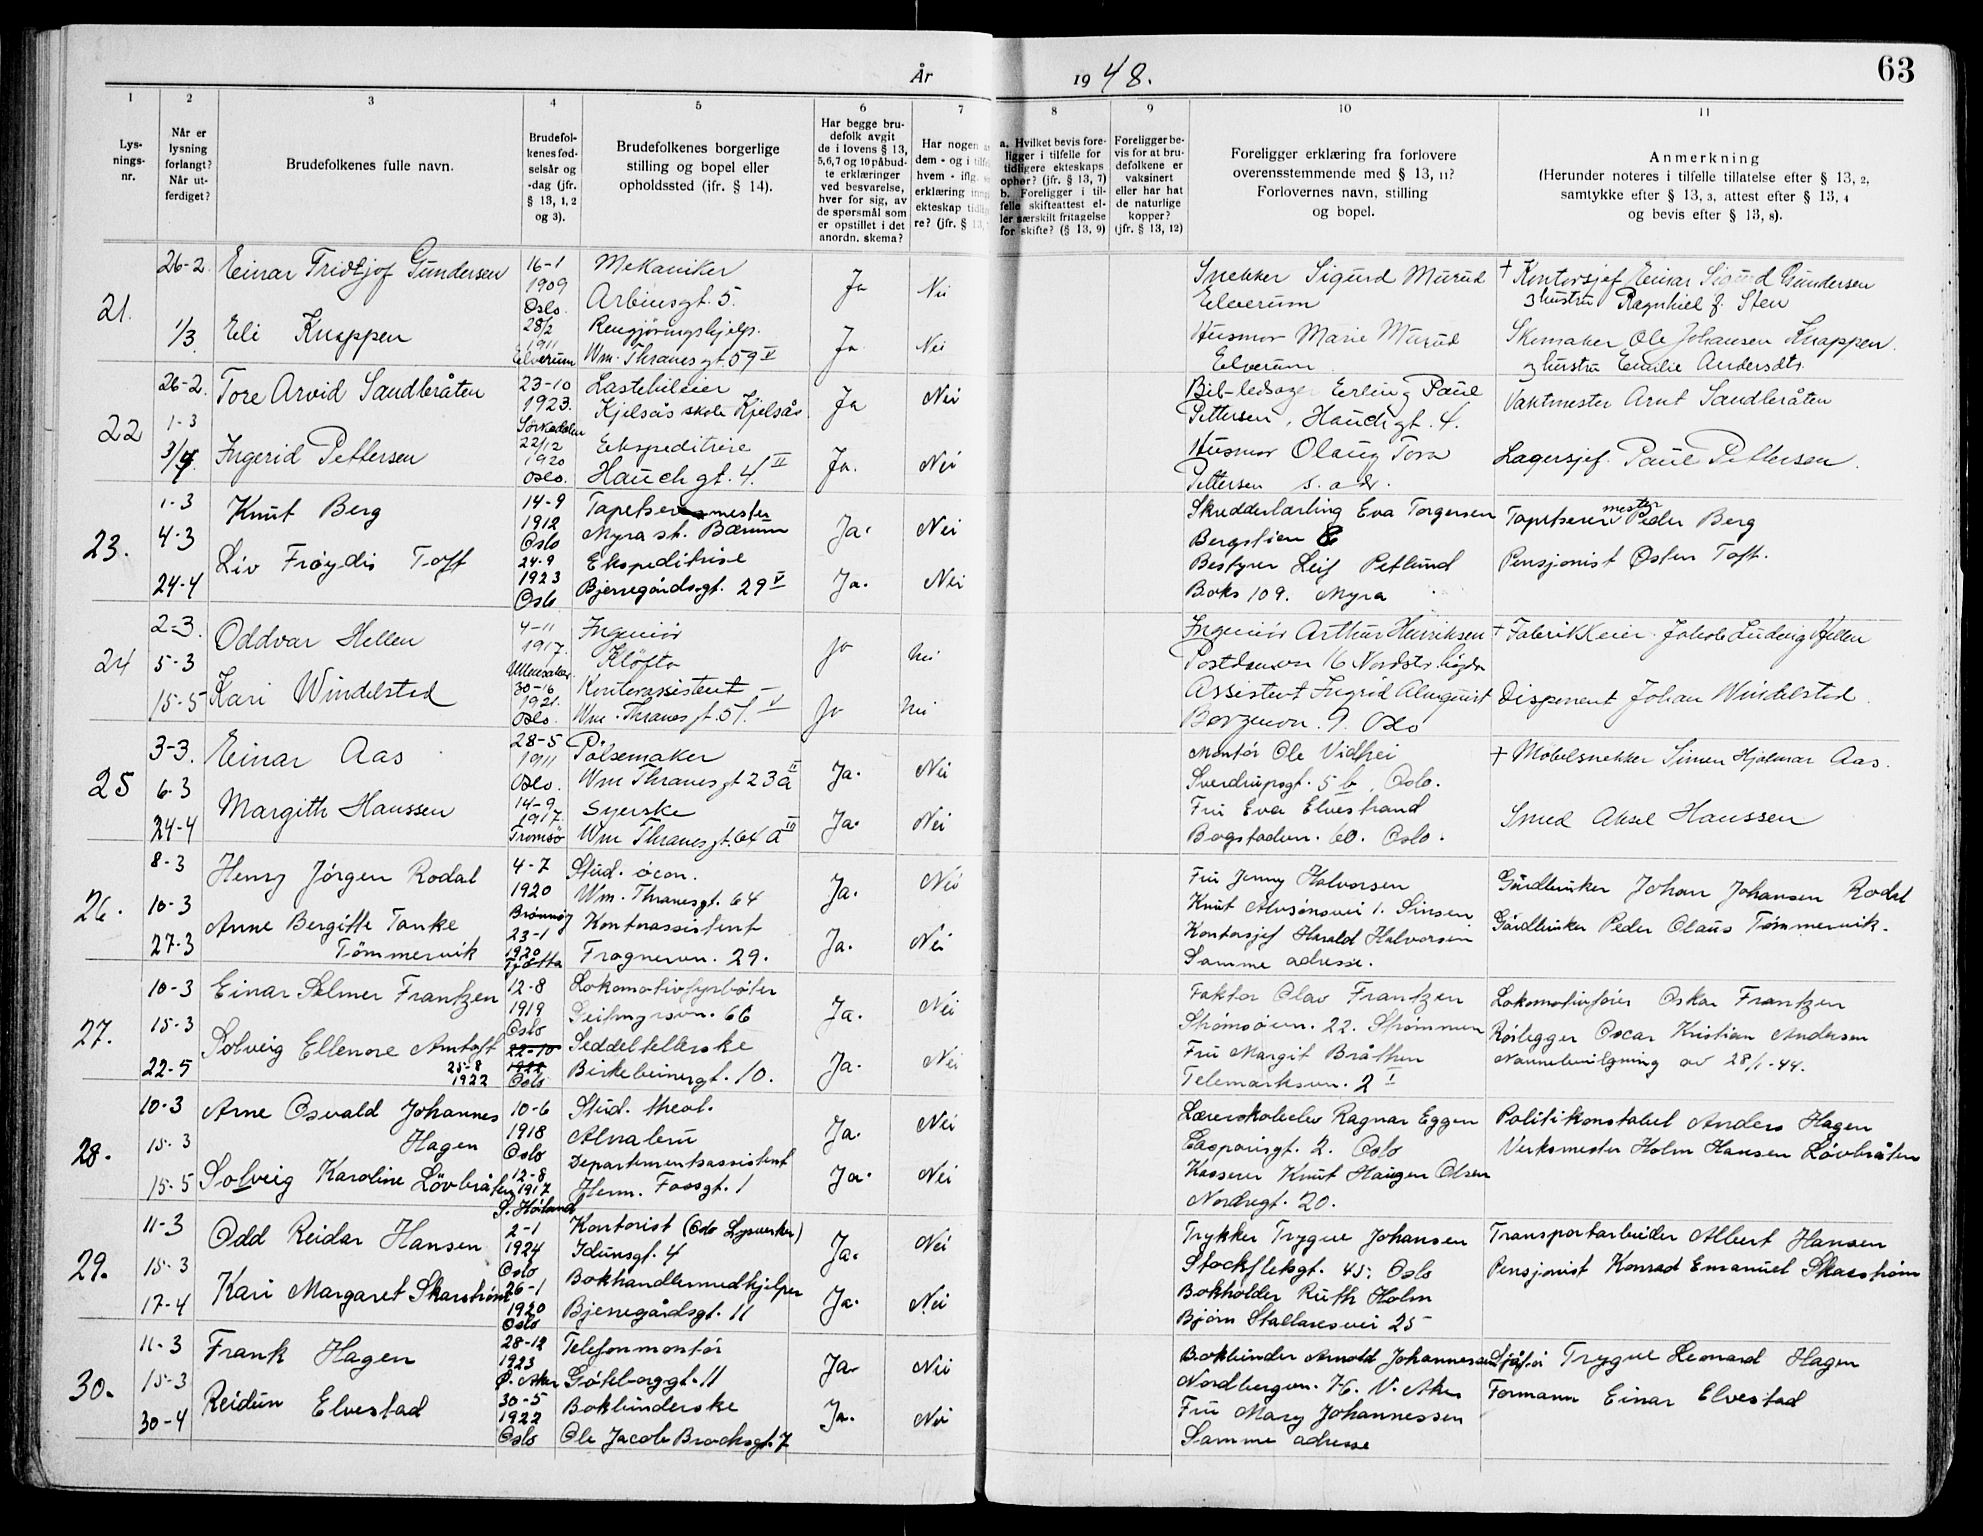 63
År 1948.
1 2 3 4 5 6 7 8 9 10 11
Lys-
nings-
nr.
Når er
lysning
forlangt?
Når ut-
ferdiget?
Brudefolkenes fulle navn.
Brudefol-
kenes fød-
selsår og
-dag (jfr.
§ 13, 1, 2
og 3).
Brudefolkenes borgerlige
stilling og bopel eller
opholdssted (jfr. § 14).
Har begge bru-
defolk avgit
de i lovens § 13,
5,6,7 og 10 påbud-
te erklæringer
ved besvarelse,
hver for sig, av
de spørsmål som
er opstillet i det
anordn. skema?
Har nogen
dem - og i tilf
hvem - iflg.
erklæring inng
ekteskap tidli
re? (jfr. § 13,
a. Hvilket bevis fore-
ligger i tilfelle for
tidligere ekteskaps
ophør? (jfr. § 13, 7)
b. Foreligger i til-
felle skifteattest el-
ler særskilt fritagelse
for skifte? (§ 13, 9)
Foreligger be-
vis for at bru-
defolkene er
vaksinert
eller har hat
de naturlige
kopper?
(jfr. § 13, 12)
Foreligger erklæring fra forlovere
overensstemmende med § 13, 11?
Forlovernes navn, stilling
og bopel.
Anmerkning
(Herunder noteres i tilfelle tillatelse efter § 13, 2,
samtykke efter § 13, 3, attest efter § 13, 4
og bevis efter § 13, 8).
21.
26-2.
1/3.
Einar Fridtjof Gundersen
Eli Knappen
16-1
1909
Oslo.
28/2
1911
Elverum
Mekaniker
Arbinsgt. 5.
Rengjøringshjelp.
Wm. Thranesgt 59 V
Ja Nei
Ja Nei
Snekker Sigurd Murud
Elverum
Husmor Marie Murud
Elverum
† Kontorsjef Einar Sigurd Gundersen
og hustru Ragnhild f. Sten
Skomaker Ole Johansen Knappen.
og hustru Emilie Andersdtr.
22
26-2.
1-3
3/4.
Tore Arvid Sandbråten
Ingerid Pettersen
23-10
1923.
Sørkedalen
22/12
1920
Oslo.
Lastebileier
Kjelsås skole Kjelsås
Ekspeditrise
Hauchgt. 4. II
Ja Nei
Ja. Nei
Erling Paul
Pettersen, Hauchgt. 4.
Husmor Olaug Tora
Pettersen s. adr.
Vaktmester Arnt Sandbråten
Lagersjef. Paul Pettersen.
23.
1-3
4-3
24-4
Knut Berg
Liv Frøydis Toft
14-9
1912
Oslo
24-9
1923
Oslo
Tapetserermester
Myra st. Bærum
Ekspeditrise
Bjerregårdsgt. 29 V
Ja. Nei
Ja. Nei
Skredderlærling Eva Torgersen
Bergstien 6
Bestyrer Leif Petlund
Boks 109. Myra
Tapetserermester Peder Berg
Pensjonist Østen Toft.
24
2-3.
5-3
15-5
Oddvar Hellen
Kari Windelstad
4-11
1917.
Ullensaker
30-16
1921.
Oslo.
Ingeniør
Kløfta
Kontorassistent
Wm. Thranesgt. 51. V
Ja Nei
Ja Nei
Ingeniør Arthur Henriksen
16 Nordstr. høgda
Assistent Ingrid Almquist
9. Oslo
† Fabrikkeier Jakob Ludvig Hellen
Disponent Johan Windelstad.
25
3-3.
6-3
24-4
Einar Aas
Margith Hanssen
28-5
1911
Oslo.
14-9
1917.
Tromsø
Pølsemaker
Wm Thranesgt 23a II
Syerske
Wm Thranesgt. 64 a III
Ja. Nei
Ja. Nei
Montør Ole Vidhei
Sverdrupsgt. 5 b, Oslo.
Fru Eva Elvestrand
Bogstadvn. 60. Oslo.
† Møbelsnekker Simen Hjalmar Aas.
Smed Aksel Hanssen
26.
8-3
10-3
27-3
Henry Jørgen Rødal
Anne Bergitte Tanke
Tømmervik
4-7
1920
Brønnøy
23-1
1920
Tjøtta
Stud. øcon.
Wm. Thranesgt. 64
Kontorassistent
Frognervn. 29.
Ja. Nei
Ja. Nei
Fru Jenny Halvorsen
Knut Alvsønsvei 1. Sinsen
Kontorsjef Harald Halvorsen
Samme adresse.
Gårdbruker Johan Johansen Rødal
Gårdbruker Peder Olaus Tømmervik.
27.
10-3
15-3
22-5
Einar Selmer Frantzen
Solveig Ellenore Amtoft
25-8
1922
12-8
1919
Oslo
22-10
1922
Oslo
Lokomotivfyrbøter
66
Seddeltellerske
Birkebeinergt. 10.
Ja. Nei
Ja. Nei
Faktor Olav Frantzen
Strømsvn. 22. Strømmen
Fru Margit Bråthen
Telemarksvn. 2 I
Lokomotivfører Oskar Frantzen
Rørlegger Oscar Kristian Andersen
Navnebevilgning av 28/1-44.
28.
10-3
15-3
15-5
Arne Osvald Johannes
Hagen
Solveig Karoline Løvbråten
10-6
1918
Oslo
12-8
1917
S. Høland
Stud. theol.
Alnabru
Departementsassistent
Herm. Fossgt. 1
Ja. Nei
Ja. Nei
Lærerskoleelev Ragnar Eggen
Casparisgt. 2. Oslo
Kasserer Knut Haugen Olsen
Nordregt. 20.
Politikonstabel Anders Hagen
Verksmester Holm Hansen Løvbråten
29.
11-3
15-3
17-4
Odd Reidar Hansen
Kari Margaret Skarstrøm
2-1
1924
Oslo
26-1
1920
Oslo
Kontorist (Oslo Lysverker)
Idunsgt. 4
Bokhandlermedhjelper
Bjerregårdsgt. 11
Ja. Nei
Ja. Nei
Trykker Trygve Johansen
Stockfletsgt. 45. Oslo
Bokholder Ruth Holm
Bjørn Stallaresvei 25
Transportarbeider Albert Hansen
Pensjonist Konrad Emanuel Skarstrøm
30.
11-3
15-3
30-4
Frank Hagen
Reidun Elvestad
28-12
1923
Ø. Aker
30-5
1922
Oslo
Telefonmontør
Gøteborggt. 11
Bokbinderske
Ole Jacob Brochsgt. 7
Ja. Nei
Ja. Nei
Bokbinder Arnold Johannessen
Nordbergvn. 76. V. Aker
Fru Mary Johannessen
Samme adresse
Sjåfør Trygve Leonard Hagen
Formann Einar Elvestad